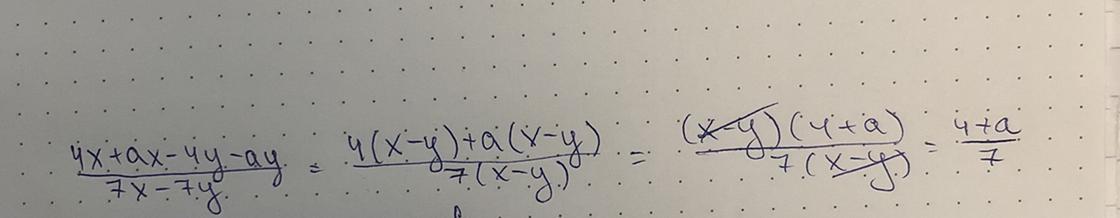 (4x+ax-4y-ay)/(7x-7y) = (4(x-y)+a(x-y))/(7(x-y)) = ((x-y)(4+a))/(7(x-y)) = (4+a)/7